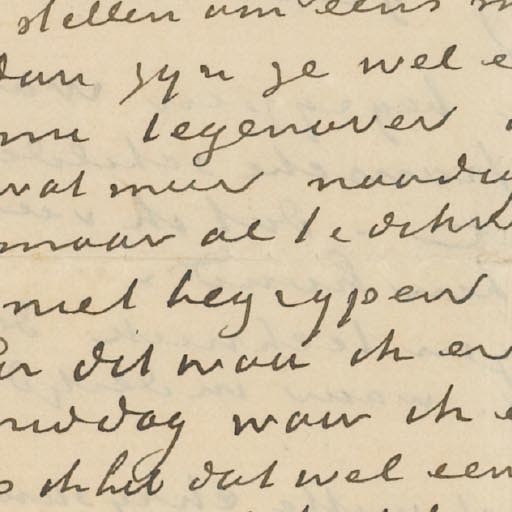 stellen om eens
dan zyn ze wel e
me tegenover
wat meer noodig
maar al te dikw
niet begrypen
en dit wou ik er
middag waar ik e
ik heb dat wel een